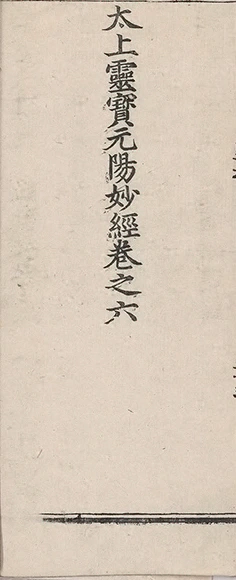 太上靈寶元陽妙經卷之六